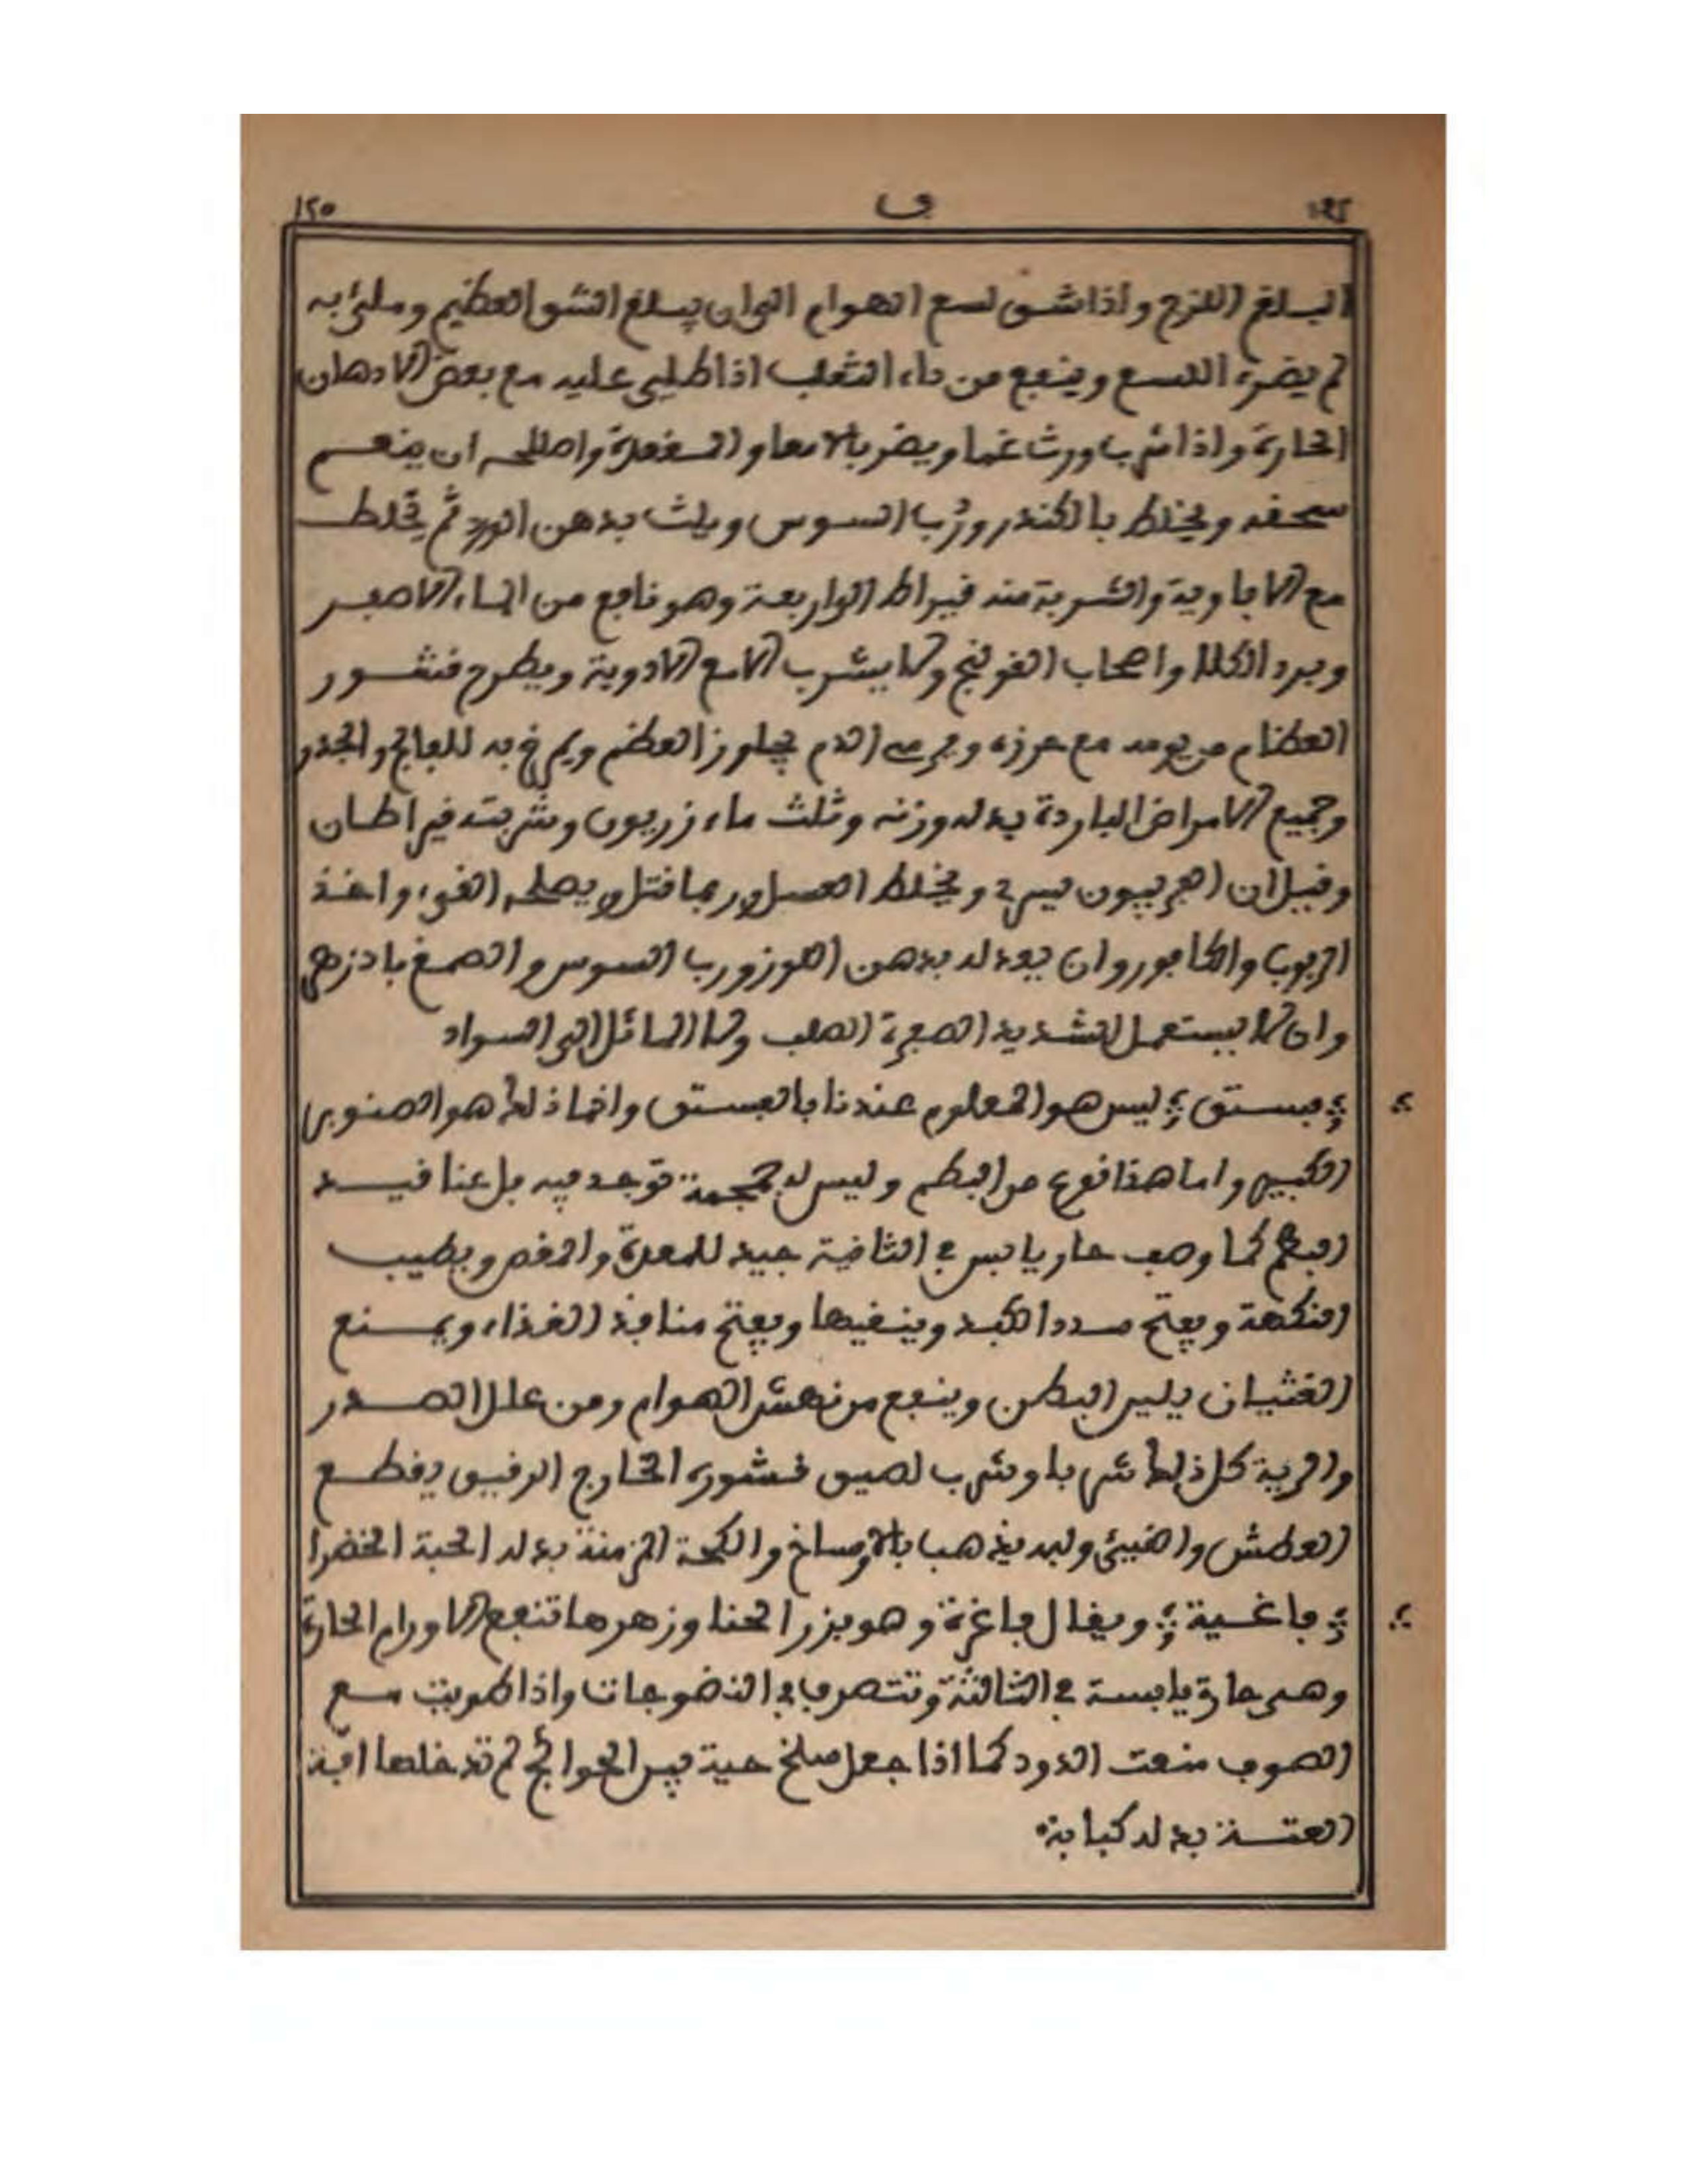 ١٩٤ ف ١٢٥
البلغم اللزج واذا شق لسع الهوام الى ان يبلغ الشق العظيم وملئ به
لم يضره اللسع وينفع من داء الثعلب اذا طلي عليه مع بعض الادهان
الحارة واذا شرب اورث غما ويضر بالامعا والمقعدة واصلاحه ان ينعم
سحقه ويخلط بالكندر ورب السوس ويلث بدهن الورد ثم يخلط
مع الافاوية والشربة منه قيراط الى اربعة وهو نافع من الماء الاصفر
وبرد الكلا واصحاب القولنج ولا يشرب الا مع الادوية ويطرح قشور
العظام من يومه مع الدم العظم ويمرخ به للفالج والخدر
وجميع الامراض الباردة بدله وزنه وثلث مازريون وشربته قيراطان
وقيل ان الفربيون ويخلط العسل وربما قتل ويصلحه القيء واخذ
الربوب والكافور وان يعدله بدهن اللوز ورب السوس والصمغ
وان لا يستعمل الشديد الصفرة الصلب ولا المائل الى السواد
فستق ليس هو المعلوم عندنا بالفستق وانما ذلك هو الصنوبر
الكبير واما هذا فنوع من البطم وليس له توجد فيه بل عنا قيد
البطم كما وصف حار يابس في الثانية جيد للمعدة والمغص ويطيب
النكهة ويفتح سدد الكبد وينقيها ويفتح منافذ الغذاء ويمنع
الغثيان يلين البطن وينفع من نهش الهوام ومن علل الصدر
والرية كل ذلك شربا وشرب لصيق قشوره الخارج الرقيق يقطع
العطش والقيئ ولبه يذهب بالاوساخ والكحة المزمنة بدله الحبة الخضرا
فاغية ويقال فاغرة وهو بزر الحنا وزهرها تنفع الاورام الحارة
وهي حارة يابسة في الثالثة وتتصرف في النضوجات واذا طويت مع
الصوف منعت الدود كما اذا جعل سلخ حية بين الحوائج لم تدخلها افة
العتة بدله كبابة